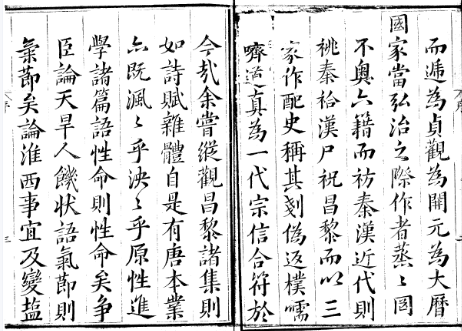 而遞為貞觀為開元為大曆
國家當弘治之際作者蒸〻國
不奧六籍而祊秦漢近代則
祧秦祫漢尸祝昌黎而以三
家作配史稱其刻偽返樸嚅
嚌道真為一代宗信合符於
今哉余嘗縱觀昌黎諸集則
如詩賦雜體自是有唐本業
亦既渢〻乎泱〻乎原性進
學諸篇語性命則性命矣爭
臣論天旱人饑狀語氣節則
氣節矣論淮西事宜及變鹽